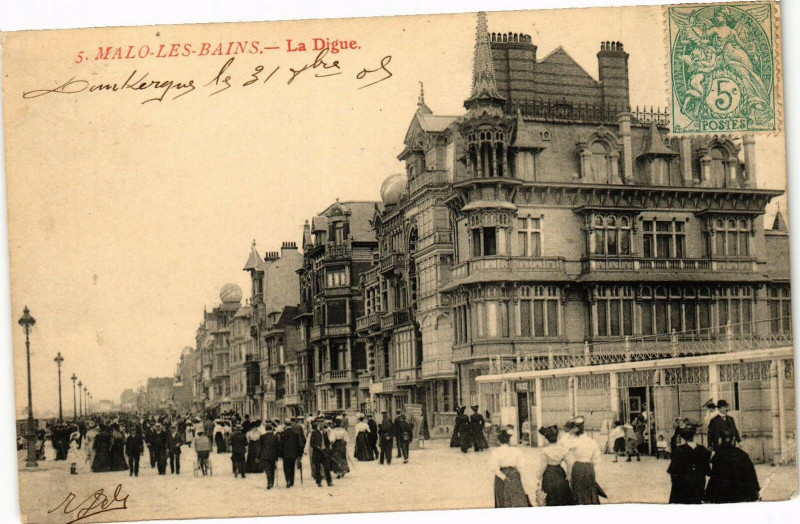 5. MALO-LES-BAINS.— La Digue.
Dunkerque le 31 Xbre 05
5c
POSTES